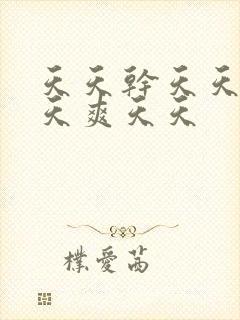 天天幹天天
天爽天天
樸愛茜